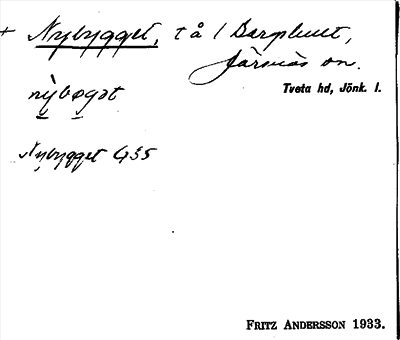 + Nybygget, t å /
Järsnäs sn.
Tveta hd, Jönk. l.
nỳbygət
Nybygget G55
FRITZ ANDERSSON 1933.